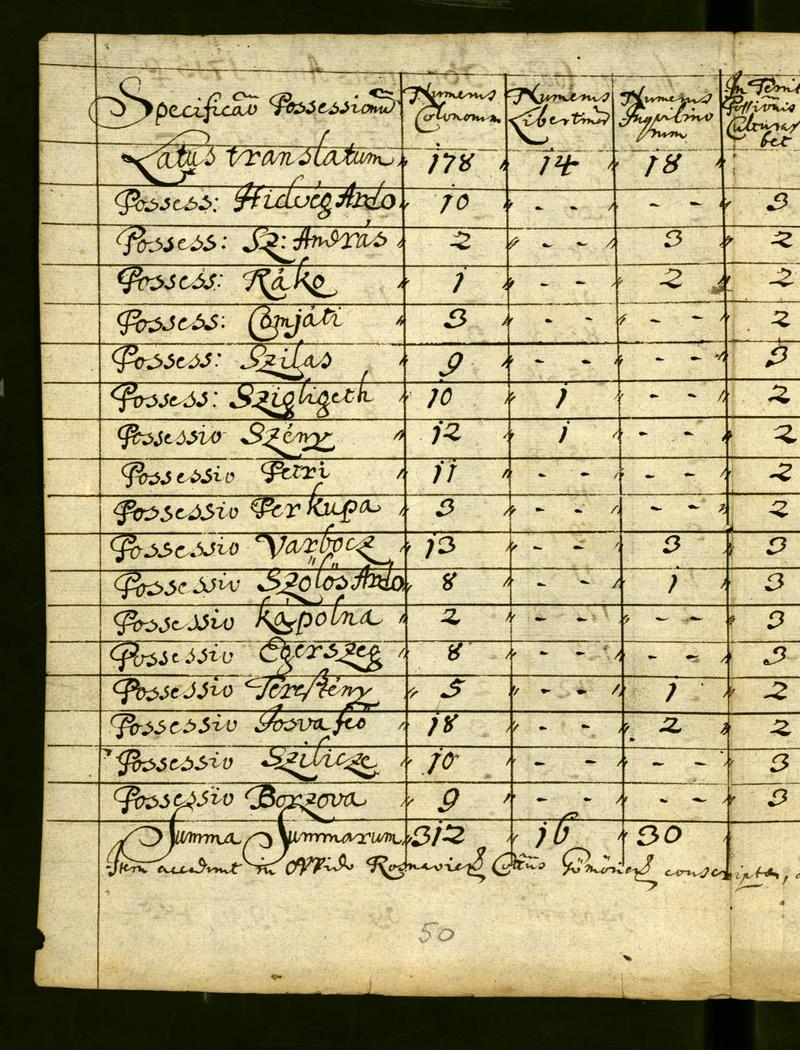 Specificaõ Possessionũ Numerus Colonorum Numerus Libertinorũ Numerus Inquilinorum In Territ Possionis Culturae bet
Latus translatum „ 178 „ 14 „ 18 „
Possess: Hidvég Ardo „ 10 „ - - „ - - „ 3
Possess: Sz: András „ 2 „ - - „ 3 „ 2
Possess: Ráko „ 1 „ - - „ 2 „ 2
Possess: Comjáti „ 3 „ - - „ - - „ 2
Possess: Szilas „ 9 „ - - „ - - „ 3
Possess: Szigligeth „ 10 „ 1 „ - - „ 2
Possessio Szény „ 12 „ 1 „ - - „ 2
Possessio Petri „ 11 „ - - „ - - „ 2
Possessio Perkupa „ 3 „ - - „ - - „ 2
Possessio Varbocz „ 13 „ - - „ 3 „ 3
Possessio Szőlős Ardo „ 8 „ - - „ 1 „ 3
Possessio Kápolna „ 2 „ - - „ - - „ 3
Possessio Egerszeg „ 8 „ - - „ - - „ 3
PossessioTeresztény „ 5 „ - - „ 1 „ 2
Possessio Josvafeő „ 18 „ - - „ 2 „ 2
Possessio Szilicze „ 10 „ - - „ - - „ 3
Possessio Borzova „ 9 „ - - „ - - „ 3
Summa Summarum „ 312 „ 16 „ 30
Item accedunt in Oppido Rosnavien Cottûs Gömörien conscriptae,
50